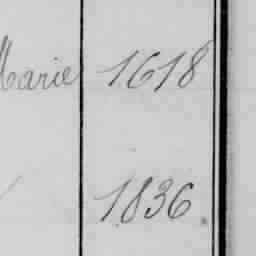 Marie 1618
1836